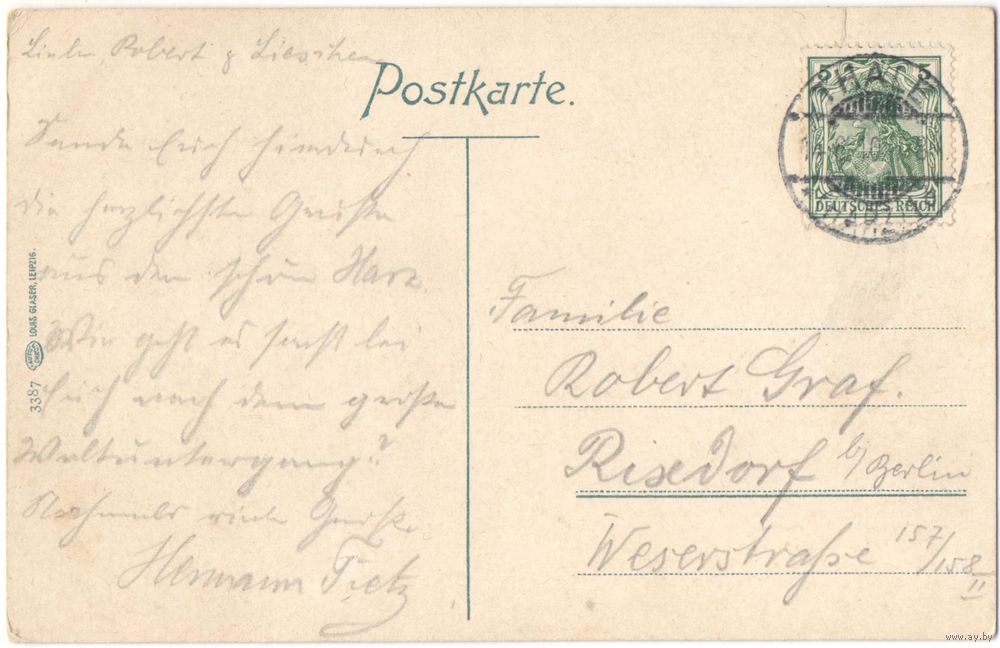 Postkarte.
Lieber Robert & Lieschen
Sende Euch hierdurch
die herzlichste Grüße
aus dem schön Harz.
Wie geht es sonst bei
Euch nach dem große
Weltuntergang?
Nochmals viele Grüße
Hermann Tietz
3387
LOUIS GLASER, LEIPZIG.
THALE
5 5
DEUTSCHES REICH
Familie
Robert Graf.
Rixdorf b/Berlin
Weserstraße 157/158 II
www.ay.by